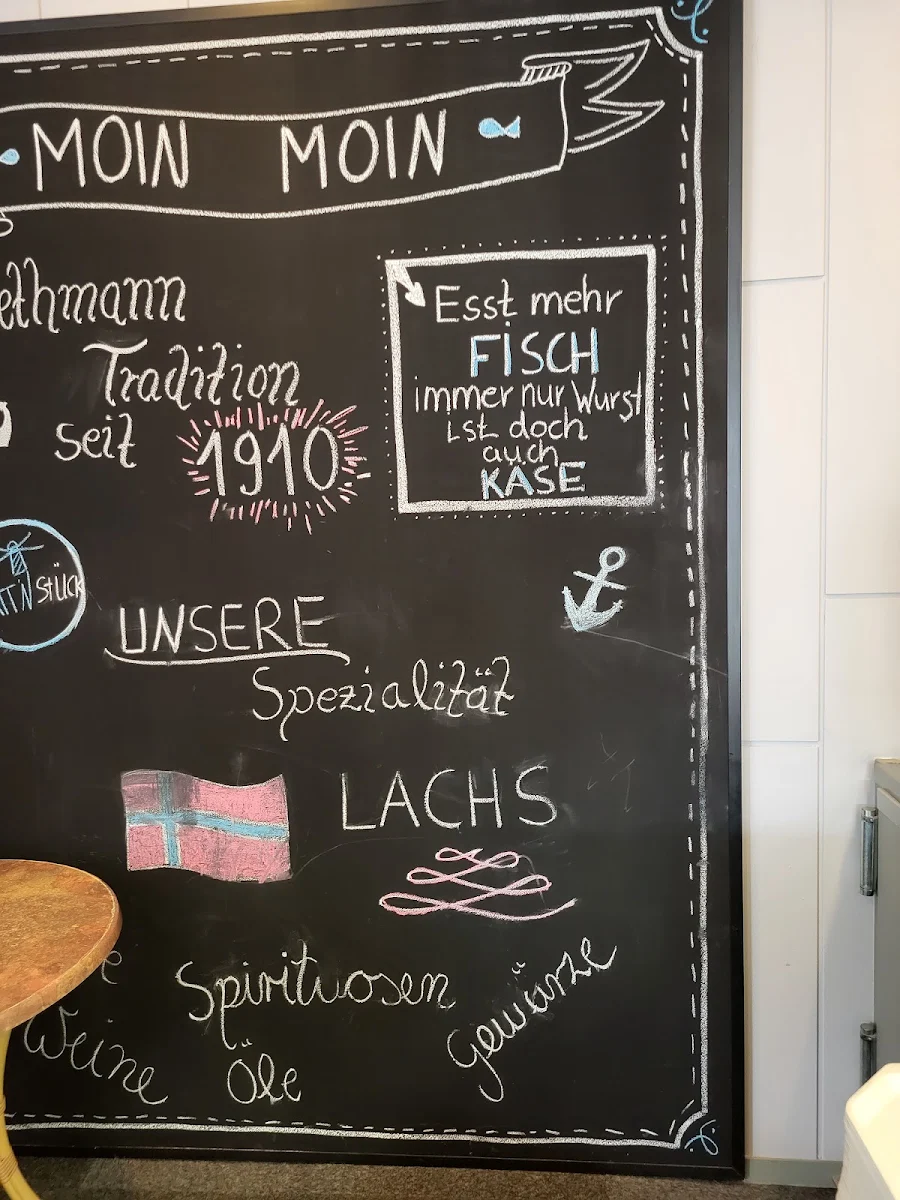 MOIN MOIN
ethmann
Tradition
seit
1910
Esst mehr
FISCH
immer nur Wurst
ist doch
auch
KÄSE
Stück
UNSERE
Spezialität
LACHS
Spirituosen
Gewürze
Weine
Öle